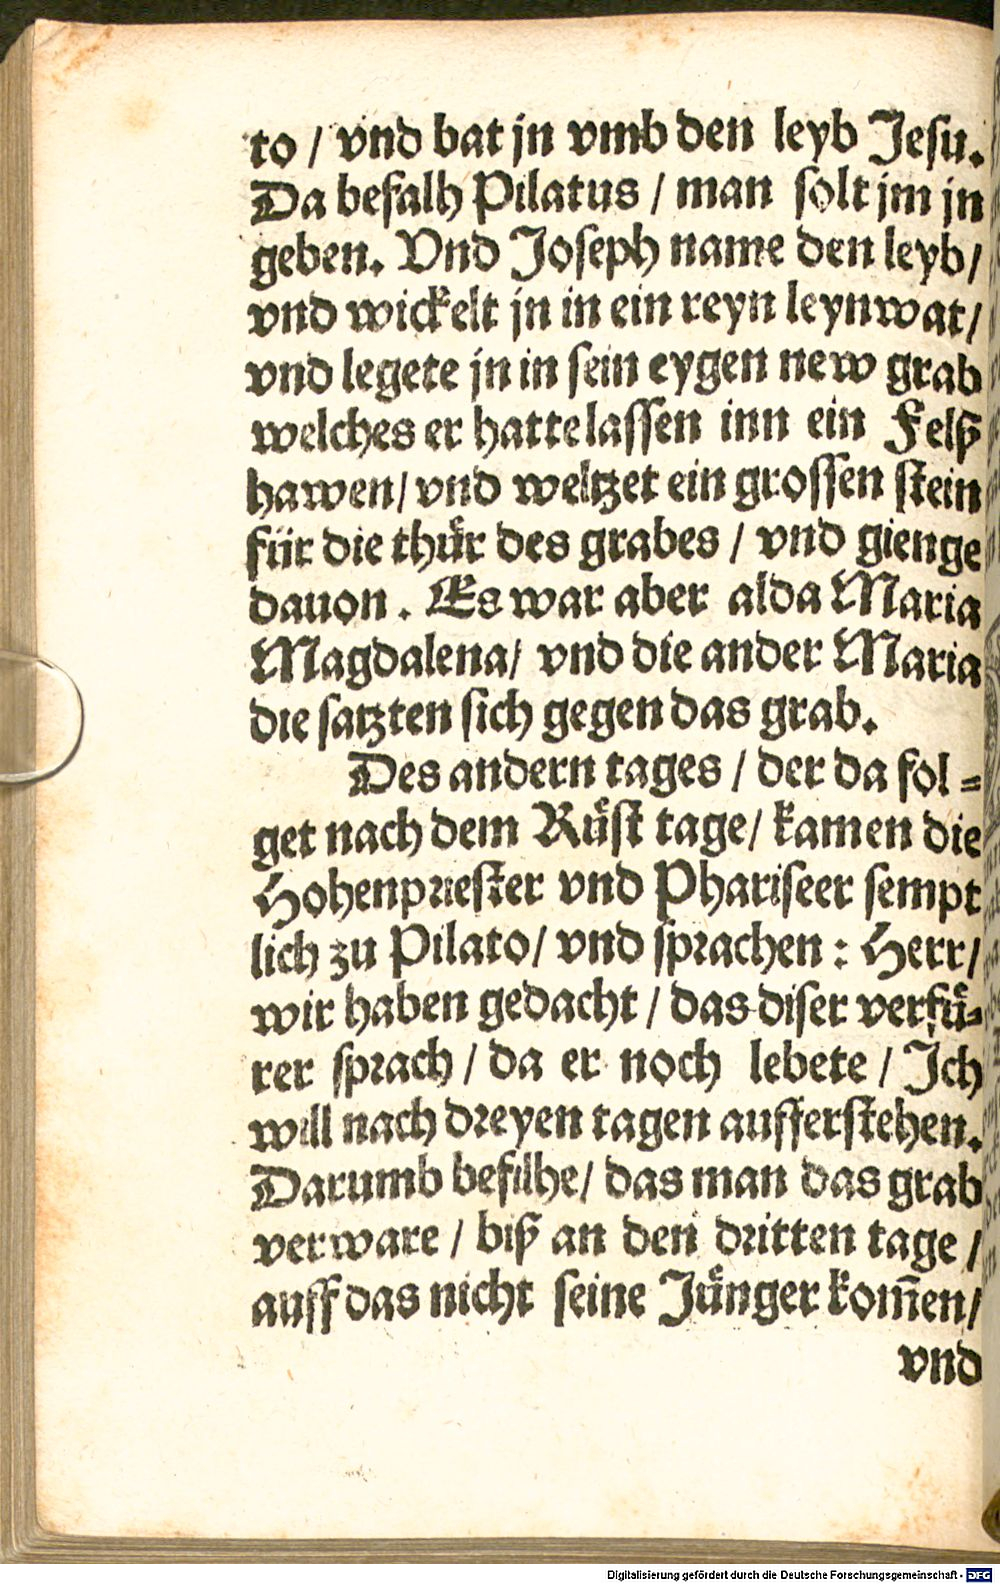 to / vnd bat jn vmb den leyb Jesu.
Da befalh Pilatus / man solt jm jn
geben. Vnd Joseph name den leyb/
vnd wickelt jn in ein reyn leynwat/
vnd legete jn in sein eygen new grab
welches er hatte lassen inn ein Felß
hawen/ vnd weltzet ein grossen stein
für die thuͤr des grabes / vnd gienge
dauon . Es war aber alda Maria
Magdalena/ vnd die ander Maria
die satzten sich gegen das grab.
Des andern tages / der da fol=
get nach dem Ruͤst tage/ kamen die
Hohenpriester vnd Phariseer sempt
lich zu Pilato/ vnd sprachen : Herr/
wir haben gedacht / das diser verfuͤ=
rer sprach / da er noch lebete / Ich
will nach dreyen tagen aufferstehen.
Darumb befilhe/ das man das grab
verware / biß an den dritten tage /
auff das nicht seine Juͤnger kom̄en/
vnd
Digitalisierung gefördert durch die Deutsche Forschungsgemeinschaft - DFG